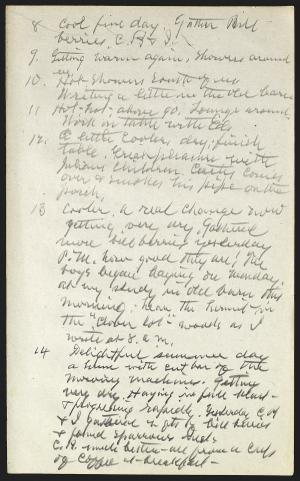 8 Cool fine day. Gather Bill
berries, C. B. & I.
9. Getting warm again, showers around
us
10. Hot - Showers South of us
Writing a little in the old barn
11 Hot - Hot - above 90. Lounge around.
Work on table with Eds.
12. A little cooler day, finish
table. Great pleasure with
Julians children. Curtis comes
over & smokes his pipe on the
porch.
13 Cooler, a real change now
getting very dry. Gathered
more billberries yesterday
P.M. how good they are! The
boys began haying on Monday,
at my study in old barn this
morning. hear the hermit in
the "Clover lot" woods as I
write at 8. a.m.
14 Delightful summer day
a hum with cutter bar of the
mowing machines. Getting
very dry. Haying in full blast
& progressing rapidly. Yesterday C.B.
& I gathered 2 qts of bill berries
& found sparrows nest.
C.B. much better - all from a cup
of coffee at breakfast -